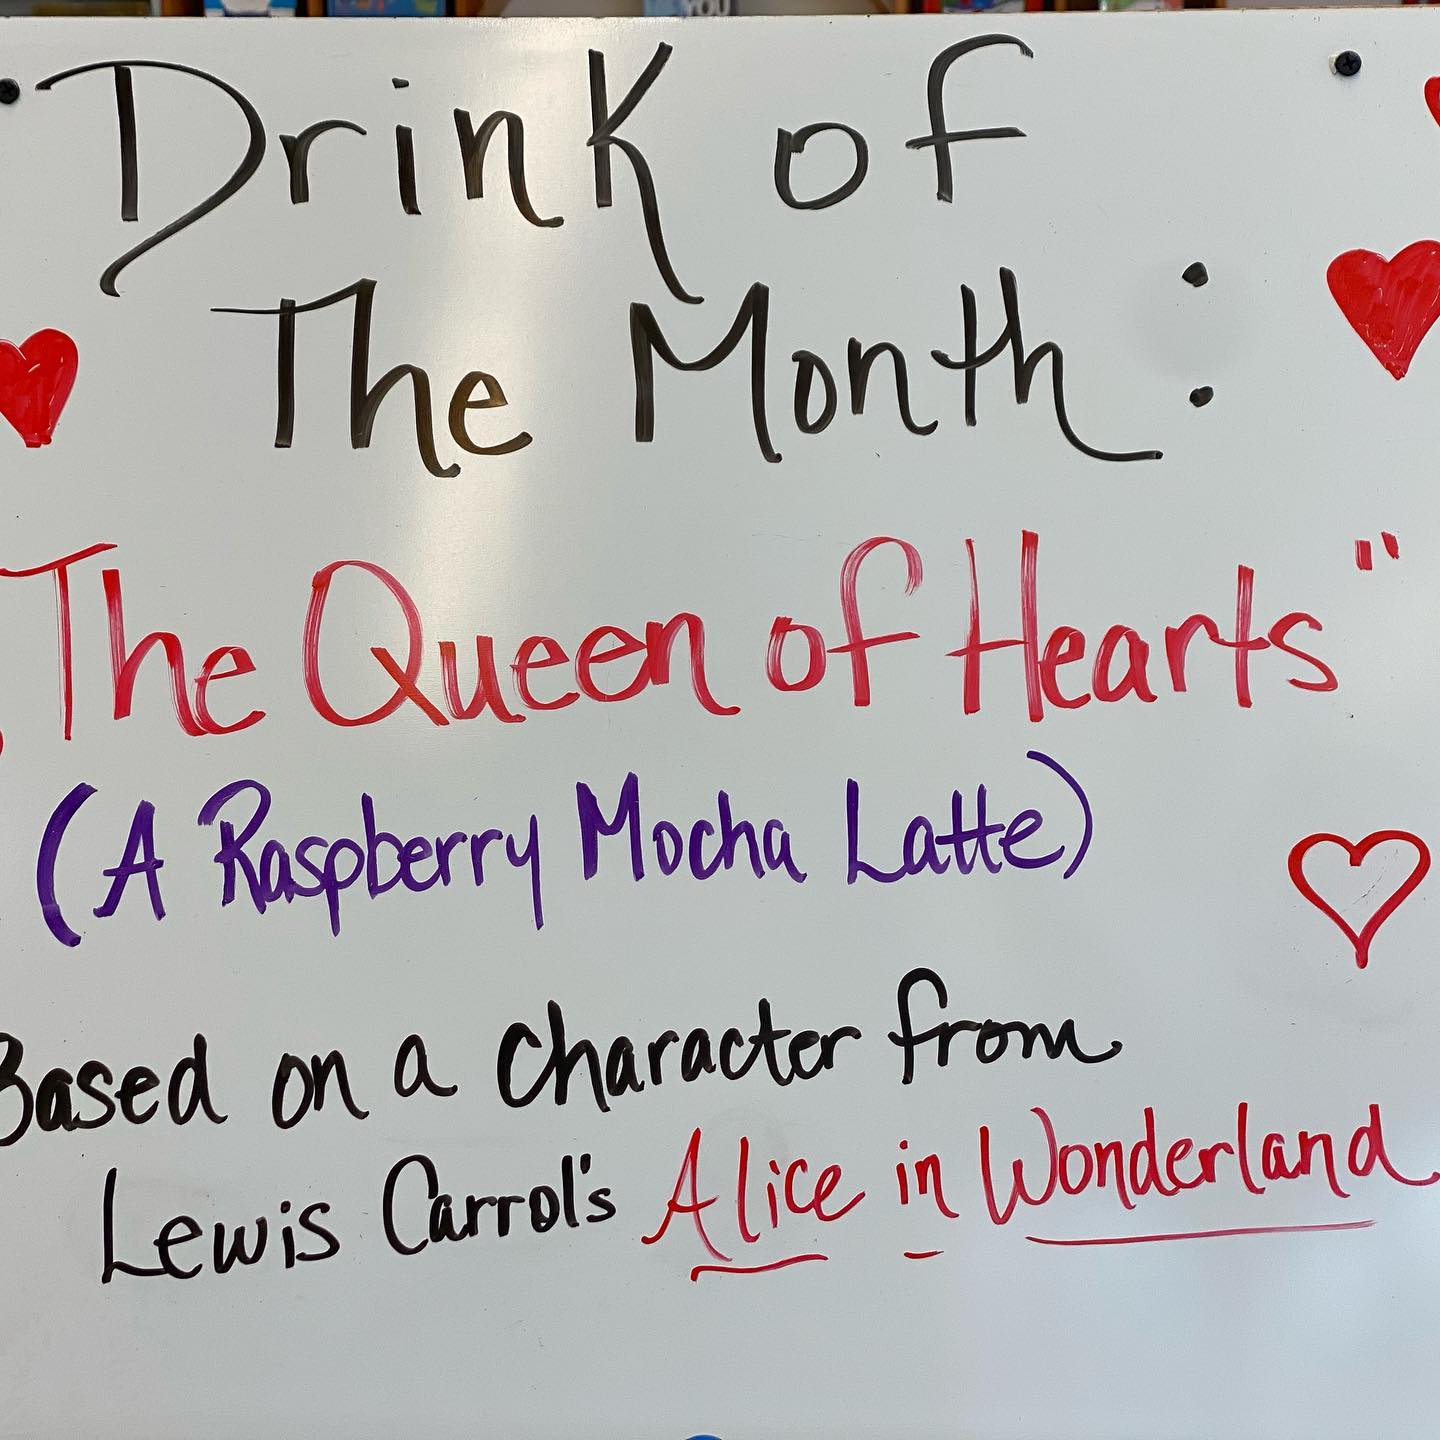 Drink of
The Month:
"The Queen of Hearts"
(A Raspberry Mocha Latte)
Based on a character from
Lewis Carrol's Alice in Wonderland
YOU